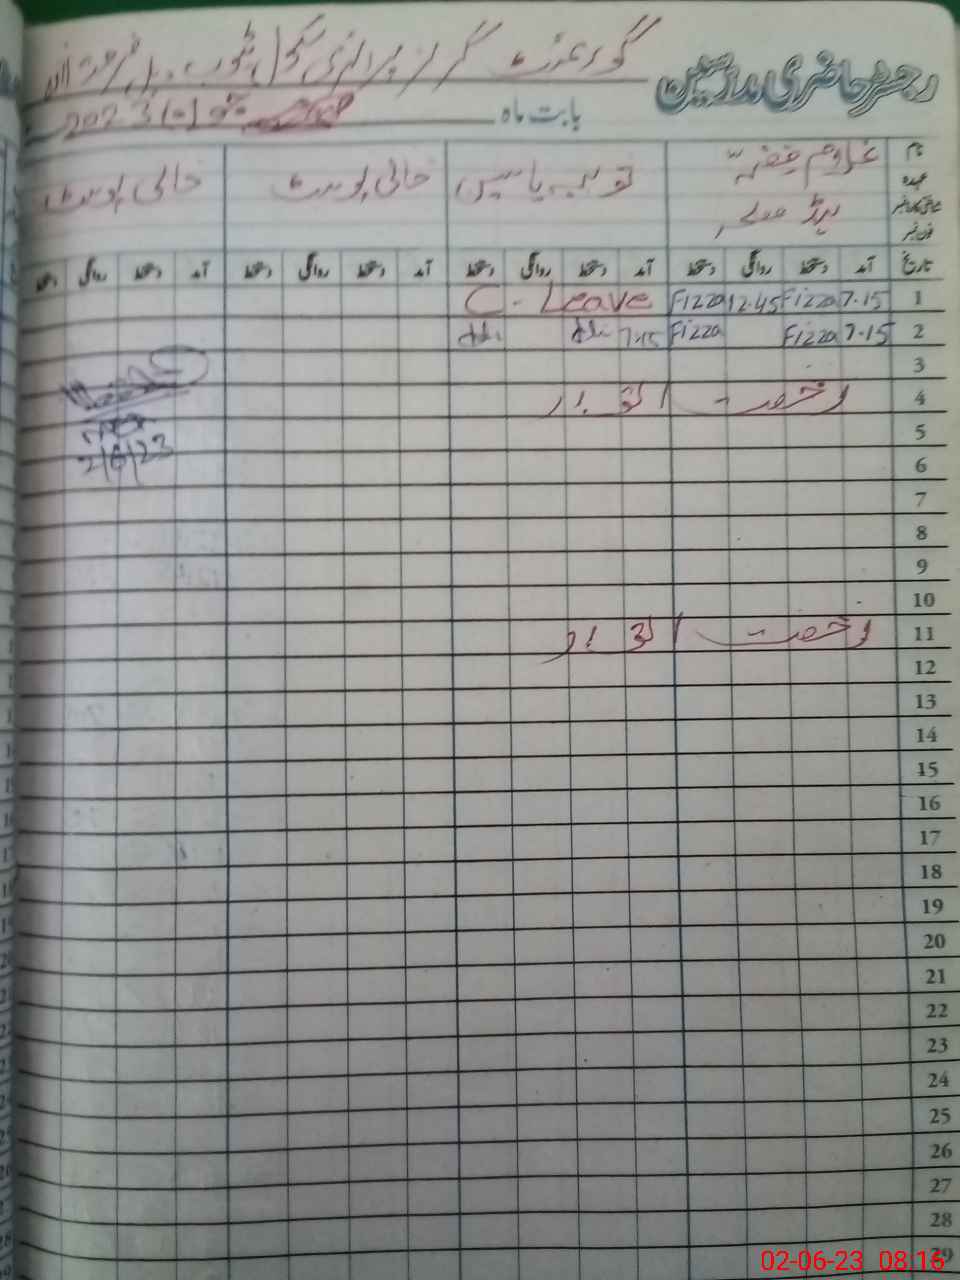 رجسٹر حاضری مدرسین
گورنمنٹ گرلز پرائمری سکول ٹیوب ویل
بابت ماہ
2023
نام
عہدہ
فون نمبر
غلام فضہ
ہیڈ
توبہ یاسین
خالی پوسٹ
خالی پوسٹ
تاریخ آمد دستخط روانگی دستخط آمد دستخط روانگی دستخط آمد دستخط روانگی دستخط آمد دستخط روانگی دستخط
1 7.15 Fizza 12.45 Fizza C. Leave
2 7.15 Fizza Fizza 7.15
3
4 رخصت اتوار
5
2/6/23
6
7
8
9
10
11 رخصت اتوار
12
13
14
15
16
17
18
19
20
21
22
23
24
25
26
27
28
29
02-06-23 08:16